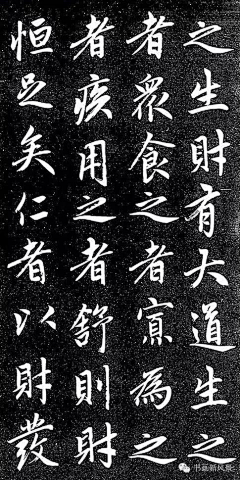 之生財有大道生之
者眾食之者寡為之
者疾用之者舒則財
恒足矣仁者以財發
书磊新风景